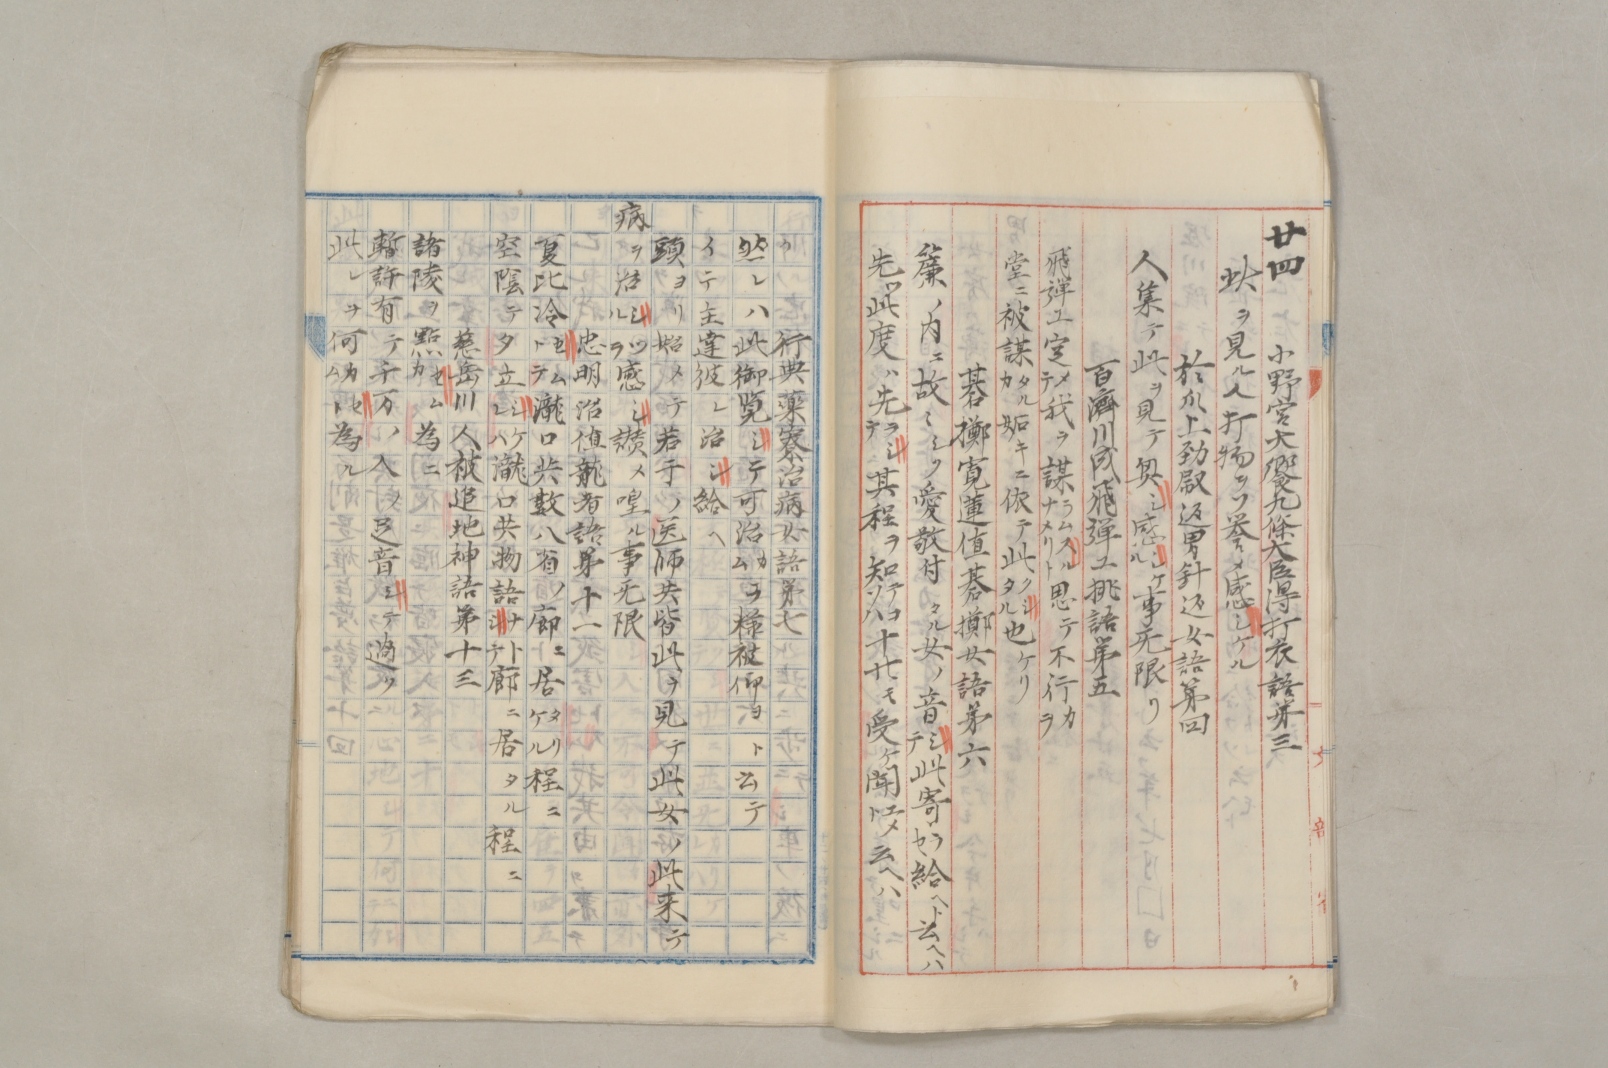 廿四 小野宮大饗九條大臣得打衣語第三
此ヲ見ル人打物ヲツ誉メ感シケル
於爪上勁殴返男針返女語第四
人集テ此ヲ見テ興シ感シケル事无限リ
百濟川成飛弾工挑語第五
飛弾工定メテ我ヲ謀ラムスルナメリト思テ不行カラ
堂ニ被謀カタル妬キニ依テ此クシタル也ケリ
碁擲寛蓮値碁擲女語第六
簾ノ内ニ故ミシク愛敬付タル女ノ音シテ此寄ラセ給ヘト云ヘハ
先此度ハ先ラシテ其程ヲ知テコソハ十廿モ受ケ聞エメト云ヘハ
行典藥寮治病女語第七
然レハ此御覧シテ可治カラム様被仰ヨト云テ
イテ主達彼レ治シ給ヘ
頭ヨリ始メテ若干ノ医師共皆此ヲ見テ此女ノ此来テ
病ヲ治シツルヲ感シ讃メ喤ル事无限
忠明治値龍者語第十一
夏比冷セムトテ瀧口共数八省ノ廊ニ居タリケル程ニ
空陰テ夕立シケレハ瀧口共物語シナトテ廊ニ居タル程ニ
慈岳川人被追地神語第十三
諸陵ヲ點セムカ為ニ
暫許有テ千万ノ人ノ足音シテ過ツ
此レヲ何カセムト為ル